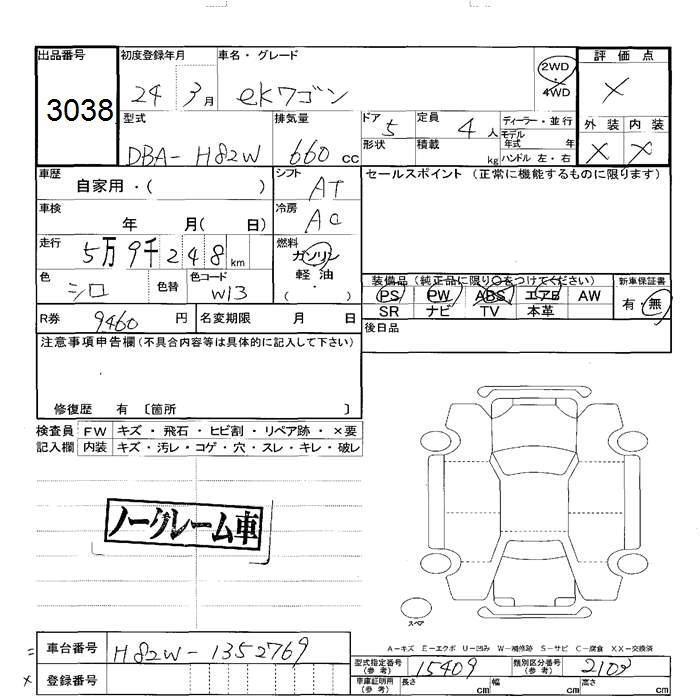 出品番号
3038
初度登録年月
24 3月
車名・グレード
eKワゴン
2WD
・
4WD
評価点
×
外装 内装
× ×
型式
DBA- H82W
排気量
660 cc
ドア 5
形状
定員 4人
積載 kg
ディーラー・並行
モデル
年式 年
ハンドル 左・右
車歴
自家用・( )
シフト
AT
セールスポイント (正常に機能するものに限ります)
車検
年 月( 日)
冷房
AC
走行
5万9千248km
燃料
ガソリン
軽油
・
( )
色
シロ
色替
色コード
W13
装備品 (純正品に限り○をつけてください)
PS PW ABS エアB AW
SR ナビ TV 本革
新車保証書
有・無
R券 9460 円
名変期限 月 日
後日品
注意事項申告欄 (不具合内容等は具体的に記入して下さい)
修復歴 有 〔箇所 〕
検査員 FW キズ・飛石・ヒビ割・リペア跡・×要
記入欄 内装 キズ・汚レ・コゲ・穴・スレ・キレ・破レ
ノークレーム車
スペア
A-キズ E-エクボ U-凹み W-補修跡 S-サビ C-腐食 XX-交換済
= 車台番号 H82W-1352769
× 登録番号
型式指定番号
(参考)
15409
類別区分番号
(参考)
車庫証明用
(参考)
長さ cm 幅 cm 高さ cm